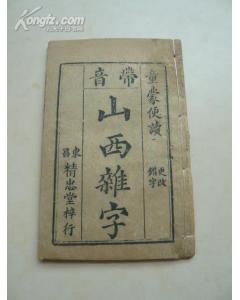 童蒙便讀
更改錯字
帶音
山西雜字
東昌
精忠堂梓行